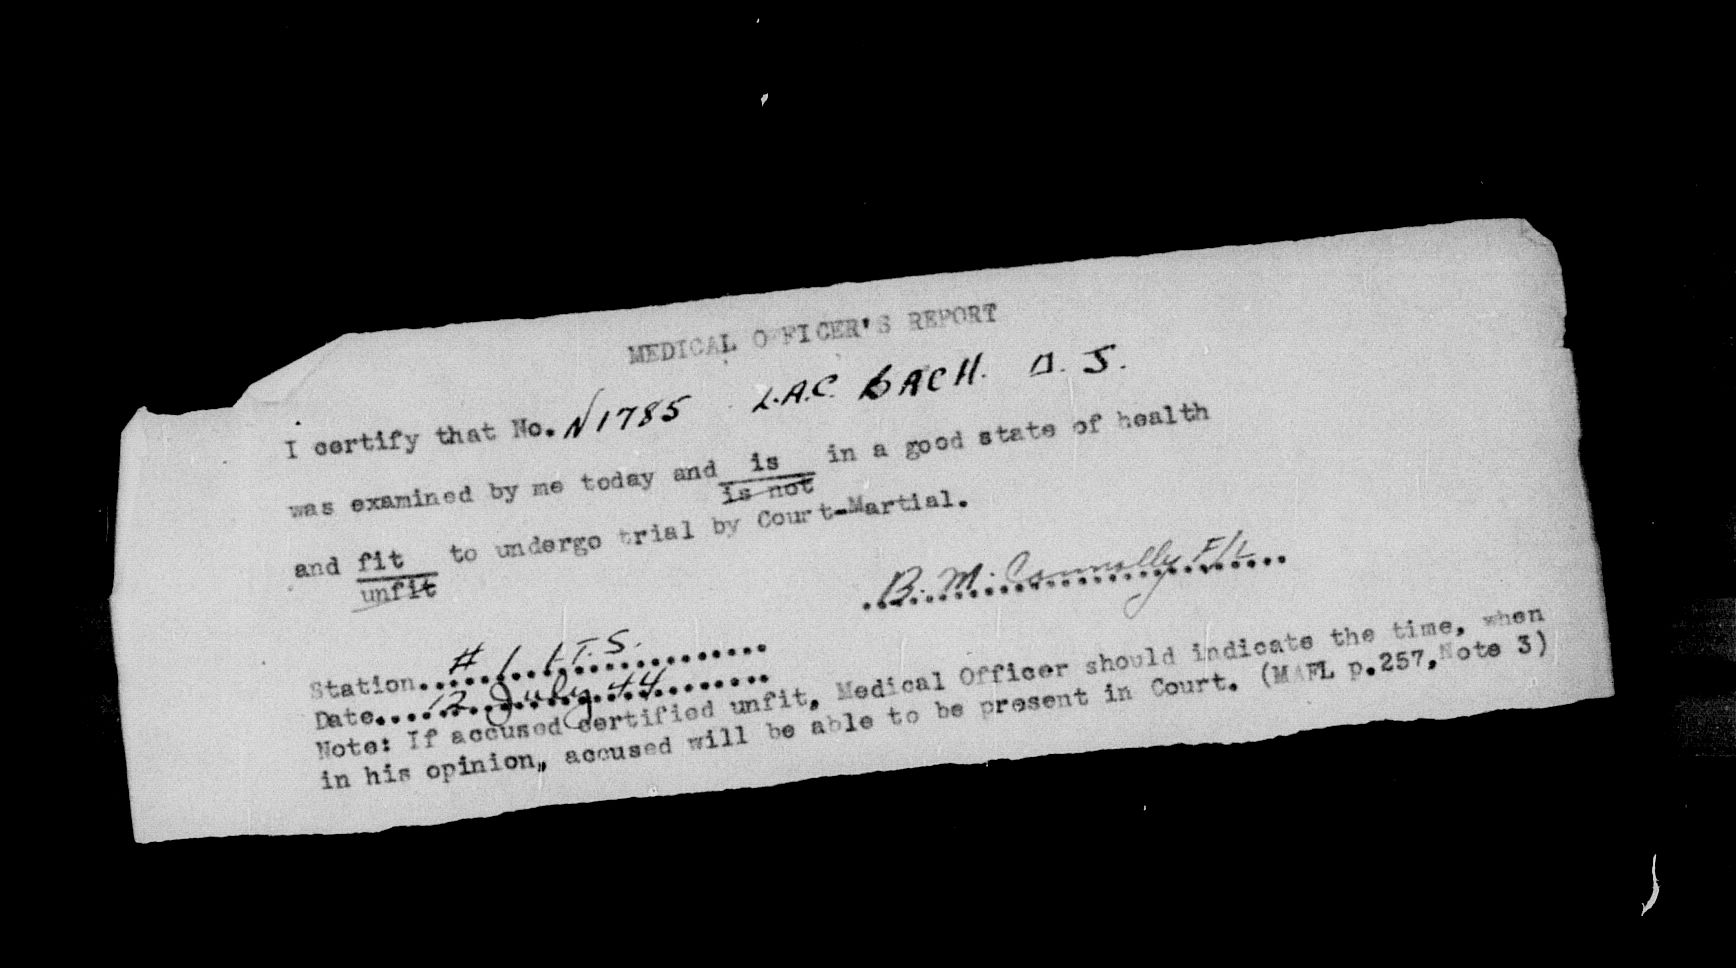 MEDICAL OFFICER'S REPORT
I certify that No. N1785 L.A.C. BACH. D. J.
was examined by me today and is in a good state of health
is not
and fit to undergo trial by Court-Martial.
unfit
B. M. Connolly F/L
Station # 1 I.T.S.
Date 12 July 44
Note: If accused certified unfit, Medical Officer should indicate the time, when
in his opinion, accused will be able to be present in Court. (MAFL p.257, Note 3)